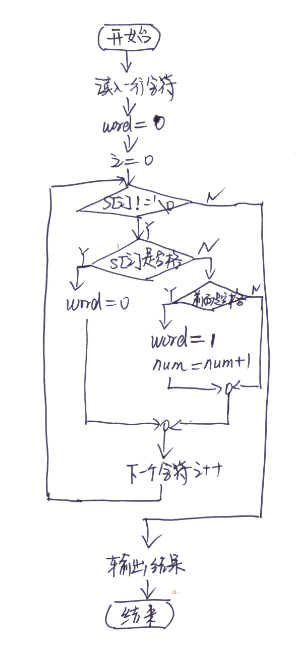 开始
读入一行字符
word = 0
i = 0
S[i] != '\0
N
Y
S[i]是空格
Y
N
word = 0
前面是空格
Y
N
word = 1
num = num+1
下一个字符 i++
输出结果
结束